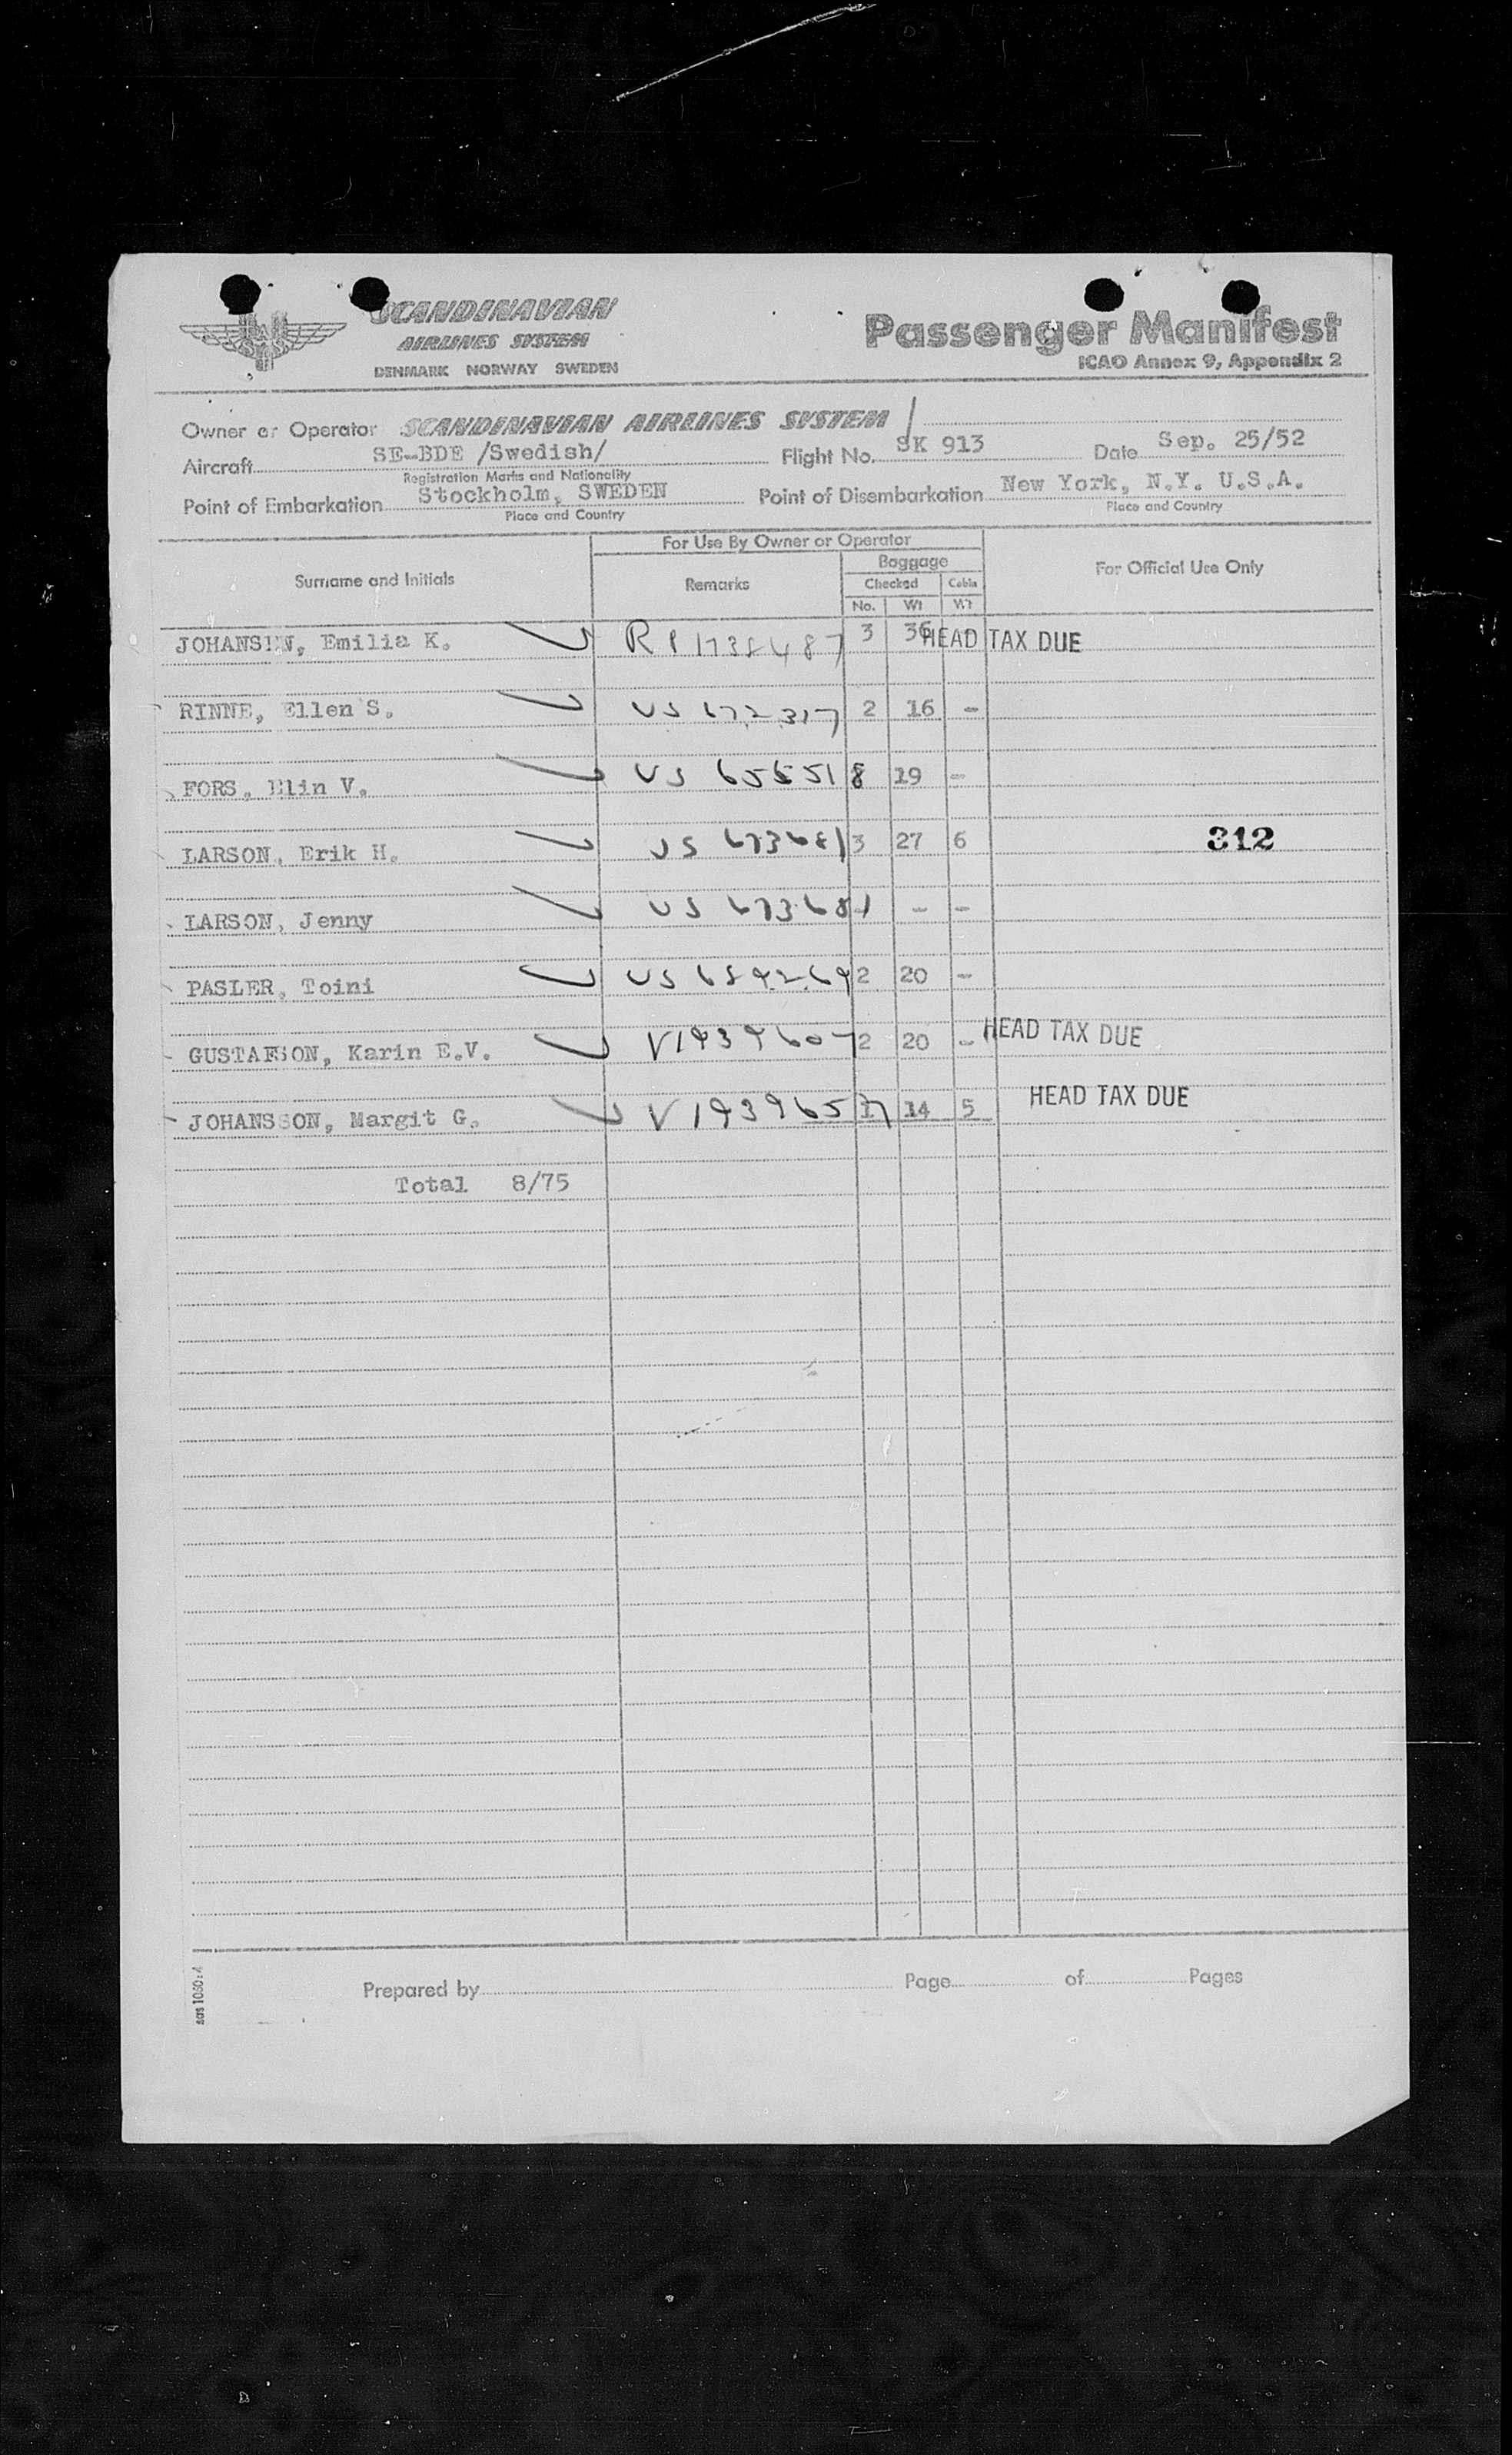 SCANDINAVIAN
AIRLINES SYSTEM
DENMARK NORWAY SWEDEN
Passenger Manifest
ICAO Annex 9, Appendix 2
Owner or Operator SCANDINAVIAN AIRLINES SYSTEM
Aircraft SE-BDE /Swedish/ Flight No. SK 913 Date Sep. 25/52
Registration Marks and Nationality
Point of Embarkation Stockholm, SWEDEN Point of Disembarkation New York, N.Y. U.S.A.
Place and Country Place and Country
For Use By Owner or Operator
Surname and Initials Remarks Baggage For Official Use Only
Checked Cabin
No. Wt Wt
JOHANSEN, Emilia K. 3 36 HEAD TAX DUE
RINNE, Ellen S. US 672317 2 16 -
FORS, Elin V. US 19 -
LARSON, Erik H. US 673681 3 27 6 312
LARSON, Jenny US 673681 - -
PASLER, Toini US 2 20 -
GUSTAFSON, Karin E.V. V1939607 2 20 - HEAD TAX DUE
JOHANSSON, Margit G. V1939657 14 5 HEAD TAX DUE
Total 8/75
Prepared by Page of Pages
sas 1080:4